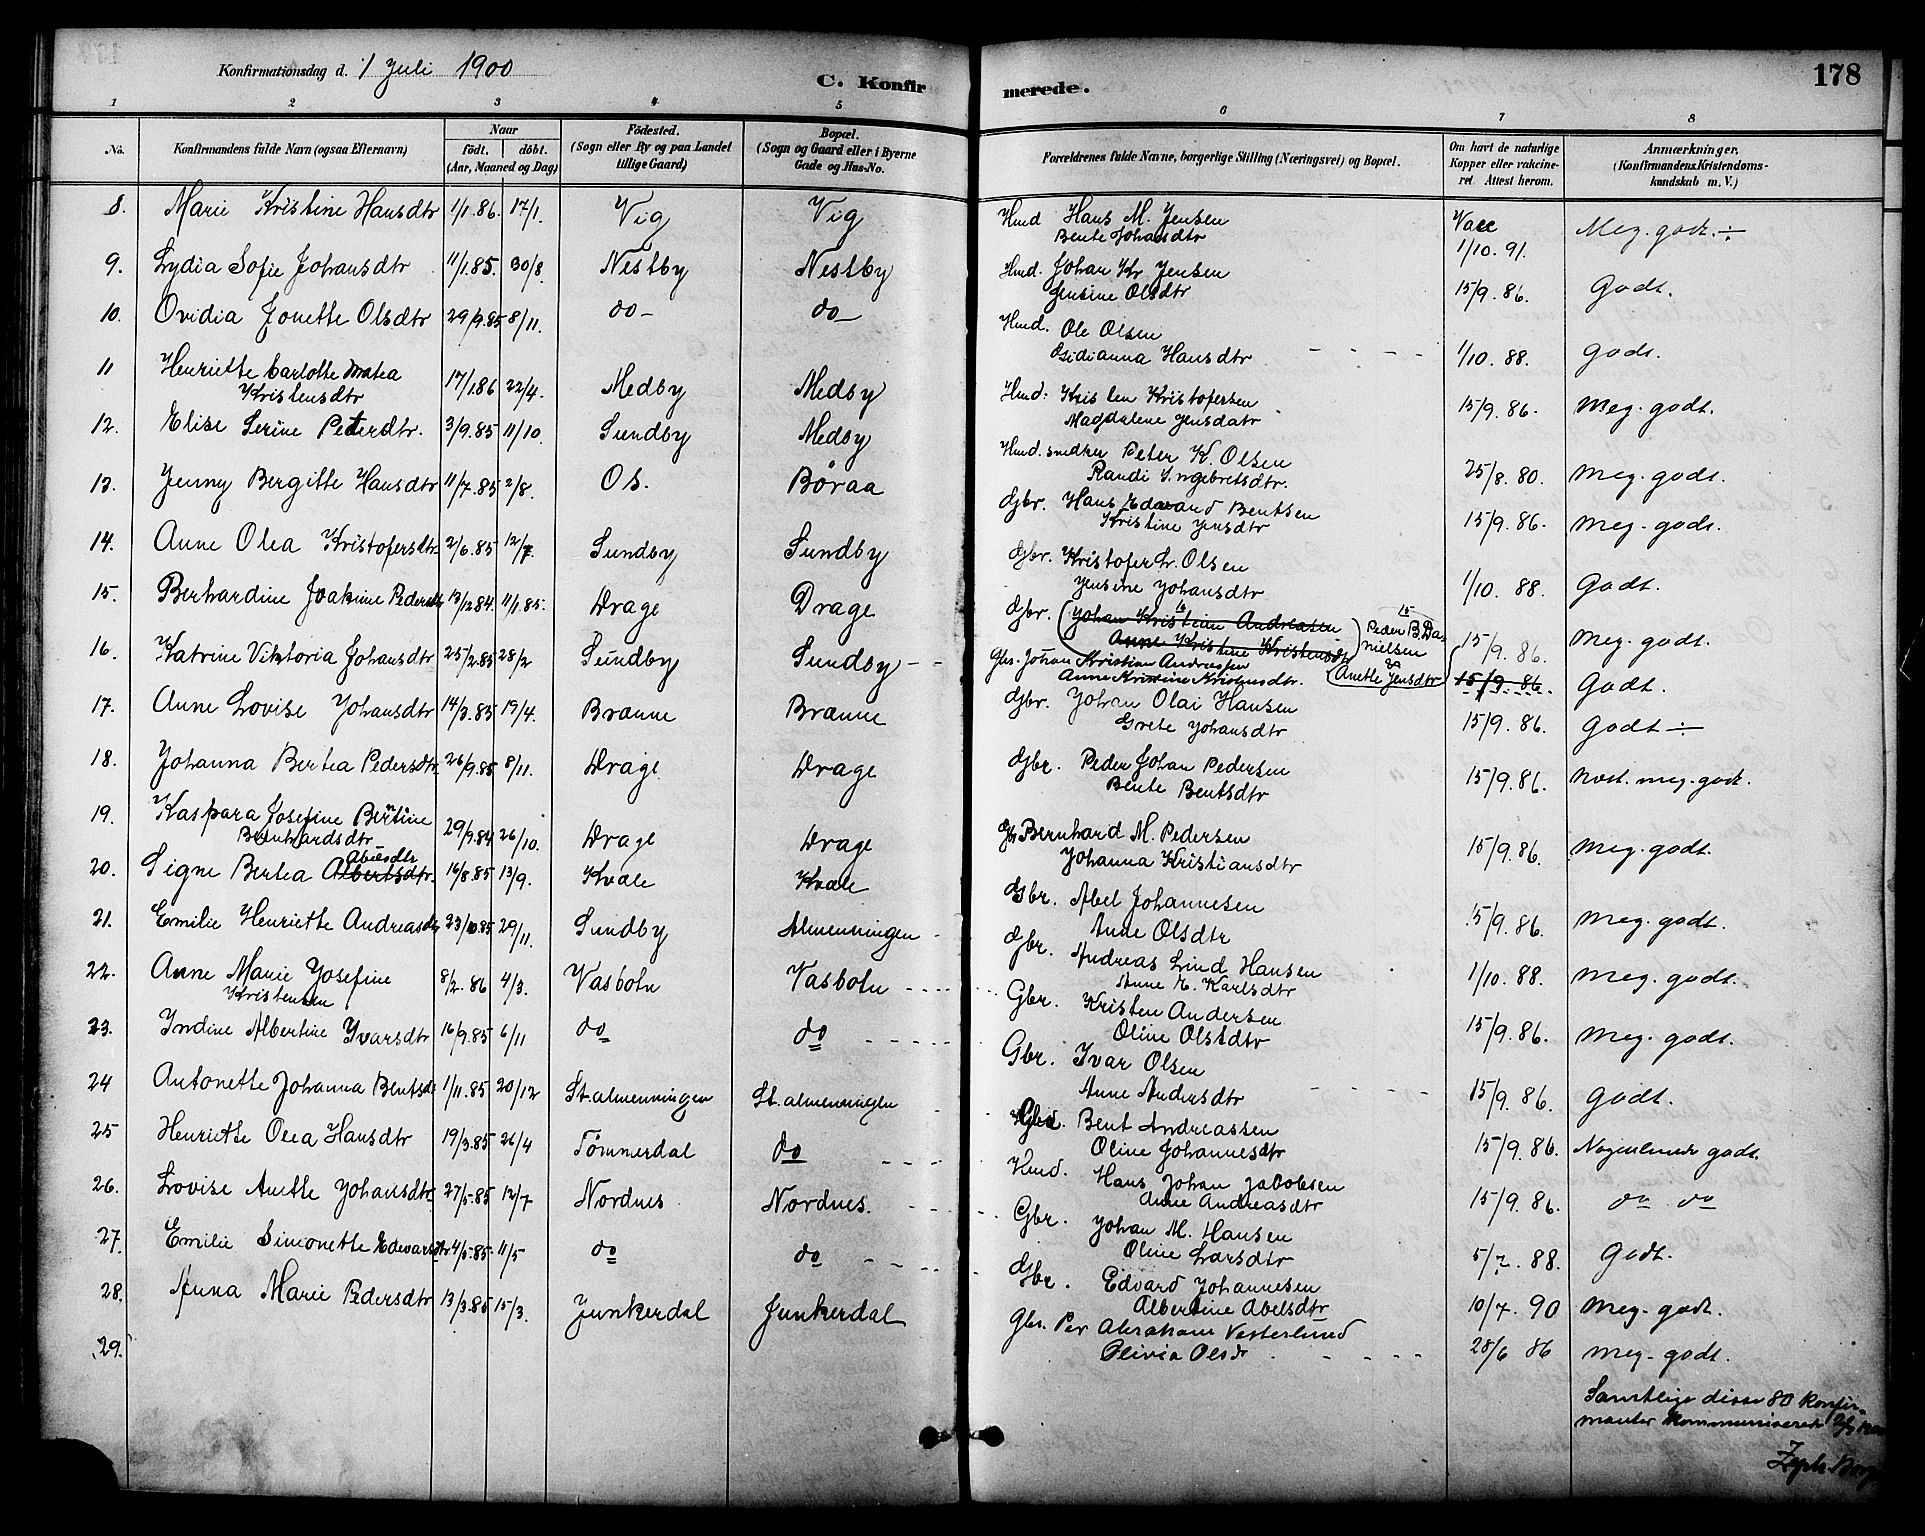 Konfirmationsdag d. 1 Juli 1900
C. Konfirmerede.
178
1 2 3 4 5 6 7 8
No.
Konfirmandens fulde Navn (ogsaa Efternavn)
Naar
födt. döbt.
(Aar, Maaned og Dag)
Födested.
(Sogn eller By og paa Landet
tillige Gaard)
Bopæl.
(Sogn og Gaard eller i Byerne
Gade og Hus-No.
Forældrenes fulde Navne, borgerlige Stilling (Næringsvei) og Bopæl.
Om havt de naturlige
Kopper eller vakcine-
ret Attest herom.
Anmærkninger,
(Konfirmandens Kristendoms-
kundskab m. V.)
8. Marie Kristine Hansdtr 1/1.86. 17/1. Vig Vig Hmd Hans M. Jensen
Bente Johansdtr Vacc 1/10. 91. Meg. godt. ÷
9. Lydia Sofie Johansdtr 11/1.85. 30/8. Nestby Nestby Hmd. Johan Kr Jensen
Jensine Olsdtr 15/9. 86. Godt.
10. Ovidia Jonette Olsdtr 29/9.85 8/11. do- do- Hmd. Ole Olsen
Hansdtr 1/10. 88. Godt.
11 Henriette Carlotte Matea
Kristensdtr 17/1.86 22/4. Medby Medby Hmd. Kristen Kristofersen
Magdalene Jensdatr 15/9. 86. Meg. godt.
12. Elise Serine Petterdtr. 3/9.85 11/10. Sundby Medby Hmd. snedker Peter K. Olsen
Randi Ingebretsdtr. 25/8. 80. Meg. godt.
13. Jenny Bergitte Hansdtr 11/7.85 2/8. Os. Böraa Gbr. Hans Edvard Bentsen
Kristine Jensdtr 15/9. 86. Meg. godt.
14. Anne Olea Kristofersdtr 2/6.85 12/7. Sundby Sundby Gbr. Kristofer L. Olsen
Jensine Johansdtr 1/10. 88. Godt.
15. Bernhardine Joakime Pedersdtr 13/12 84. 11/1.85. Drage Drage Gbr. (Johan Kristian Andreasen
Anne Kristine Kristensdtr) 15 Peder B. Da-
nielsen
&
Anette Jensdtr 15/9. 86. Meg. godt.
16. Katrine Viktoria Johansdtr 25/2.85 28/2 Sundby Sundby Gbr. Johan Kristian Andreassen
Anne Kristine Kristensdtr. 15/9. 86. Godt.
17. Anne Lovise Johansdtr 14/3.85 19/4. Brænne Brænne Gbr. Johan Olai Hansen
Grete Johansdtr 15/9. 86. Godt ÷
18. Johanna Bertea Pedersdtr. 26/9.85 8/11. Drage Drage Gbr. Peder Johan Pedersen
Bente Bentsdtr 15/9. 86. Næst. meg. godt.
19. Kaspara Josefine Berntine
Bernhardsdtr 29/9.84 26/10. Drage Drage Gbr Bernhard M. Pedersen
Johanna Kristiansdtr 15/9. 86. Meg. godt.
20. Signe Bertea Albertsdtr. Abelsdtr 16/8.85 13/9. Kvale Kvale Gbr. Abel Johannesen
Anne Olsdtr 15/9. 86. Meg. godt.
21. Emilie Henriette Andreasdtr 23/10.85 29/11. Sundby Almenningen Gbr. Andreas Lind Hansen
Anne E. Karlsdtr 1/10. 88. Meg. godt.
22. Anne Marie Josefine
Kristensen 8/2. 86 4/3. Vasbotn Vasbotn Gbr. Kristen Andersen
Oline Olsdtr 15/9. 86. Meg. godt.
23. Indine Albertine Ivarsdtr 16/9.85 6/11 do do Gbr. Ivar Olsen
Anne Andersdtr 15/9. 86. Godt.
24 Antonette Johanna Bentsdtr 1/11.85 20/12 St.almenningen St.almenningen Bent Andreassen
Oline Johannesdtr 15/9. 86. Nogenlunde godt.
25 Henriette Olea Hansdtr 19/3.85 26/4 Tömmerdal do Hmd. Hans Johan Jakobsen
Anne Andreasdtr 15/9. 86. do do
26. Lovise Anette Johansdtr 27/5.85 12/7 Nordnes Nordnes. Gbr. Johan M. Hansen
Oline Larsdtr 5/7. 88. Godt.
27. Emilie Simonette Edvarsdtr 4/5.85 11/5 do do Gbr. Edvard Johannesen
Albertine Abelsdtr 10/7. 90 Meg. godt.
28. Anna Marie Pedersdtr 13/3.85 15/3. Junkerdal Junkerdal Gbr. Per Abraham Vesterlund
Olivia Olsdr 28/6 86 Meg. godt.
29.
Samtlige disse 80 konfir-
manter kommuniserede